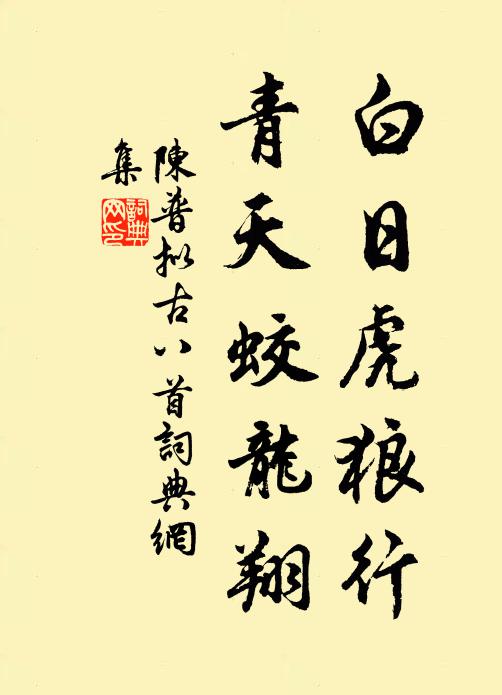 白日虎狼行
青天蛟龍翔
陳普擬古八首詞典網
集
詞典網印